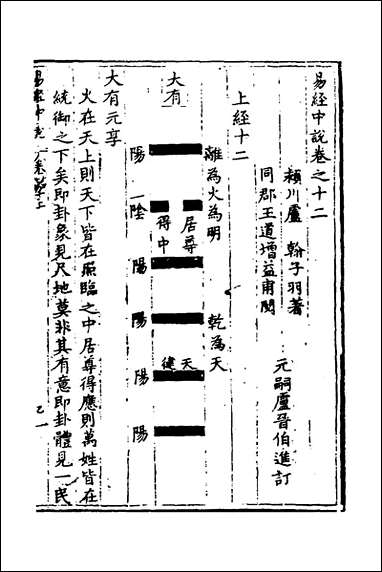 易經中說卷之十二
潁川盧 翰子羽著
同郡王道增益甫閱
元嗣盧晉伯進訂
上經十二
離為火為明 乾為天
居尊
得中
天
健
陽
一陰
陽
陽
陽
陽
大有
大有元亨
火在天上則天下皆在照臨之中居尊得應則萬姓皆在
統御之下矣即卦象見尺地莫非其有意即卦體見一民